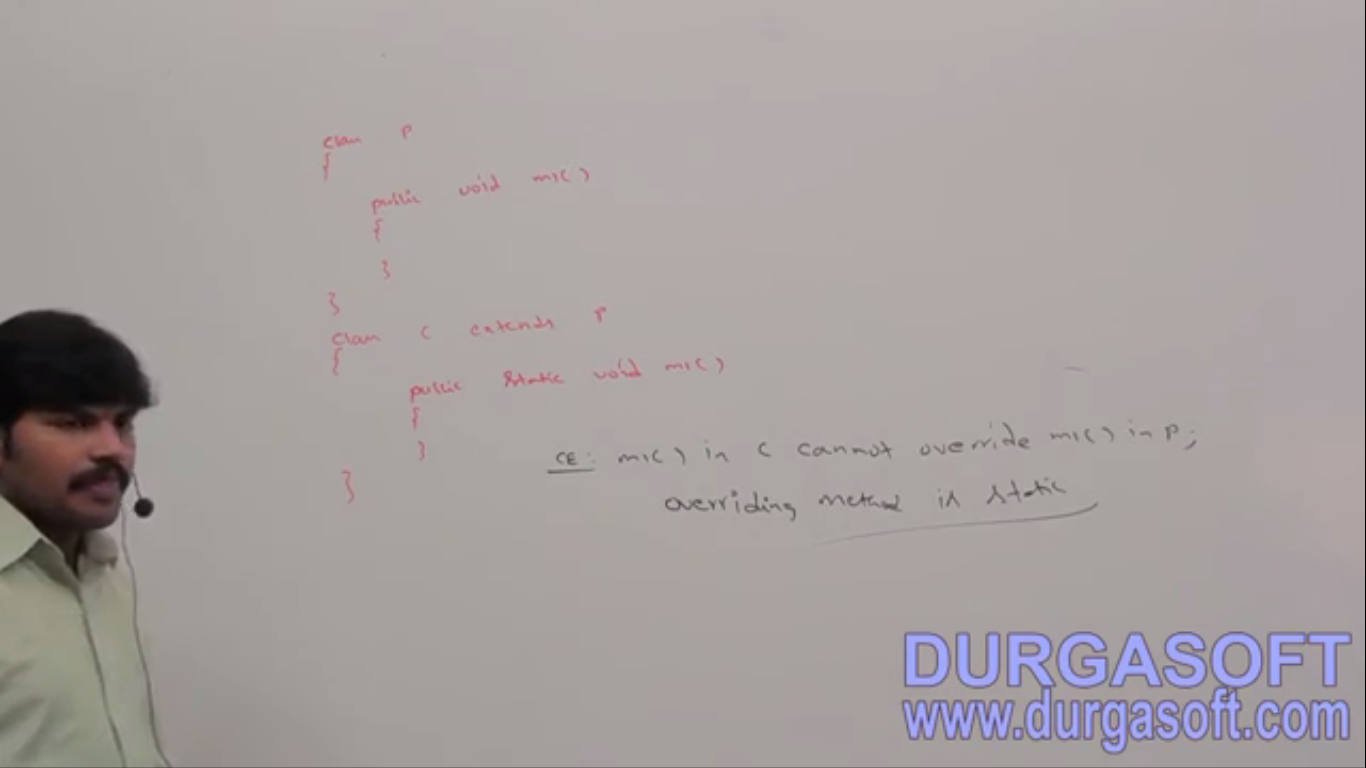 class P
{
public void m1()
{
}
}
class C extends P
{
public static void m1()
{
}
}
CE: m1() in C cannot override m1() in P;
overriding method is static
DURGASOFT
www.durgasoft.com